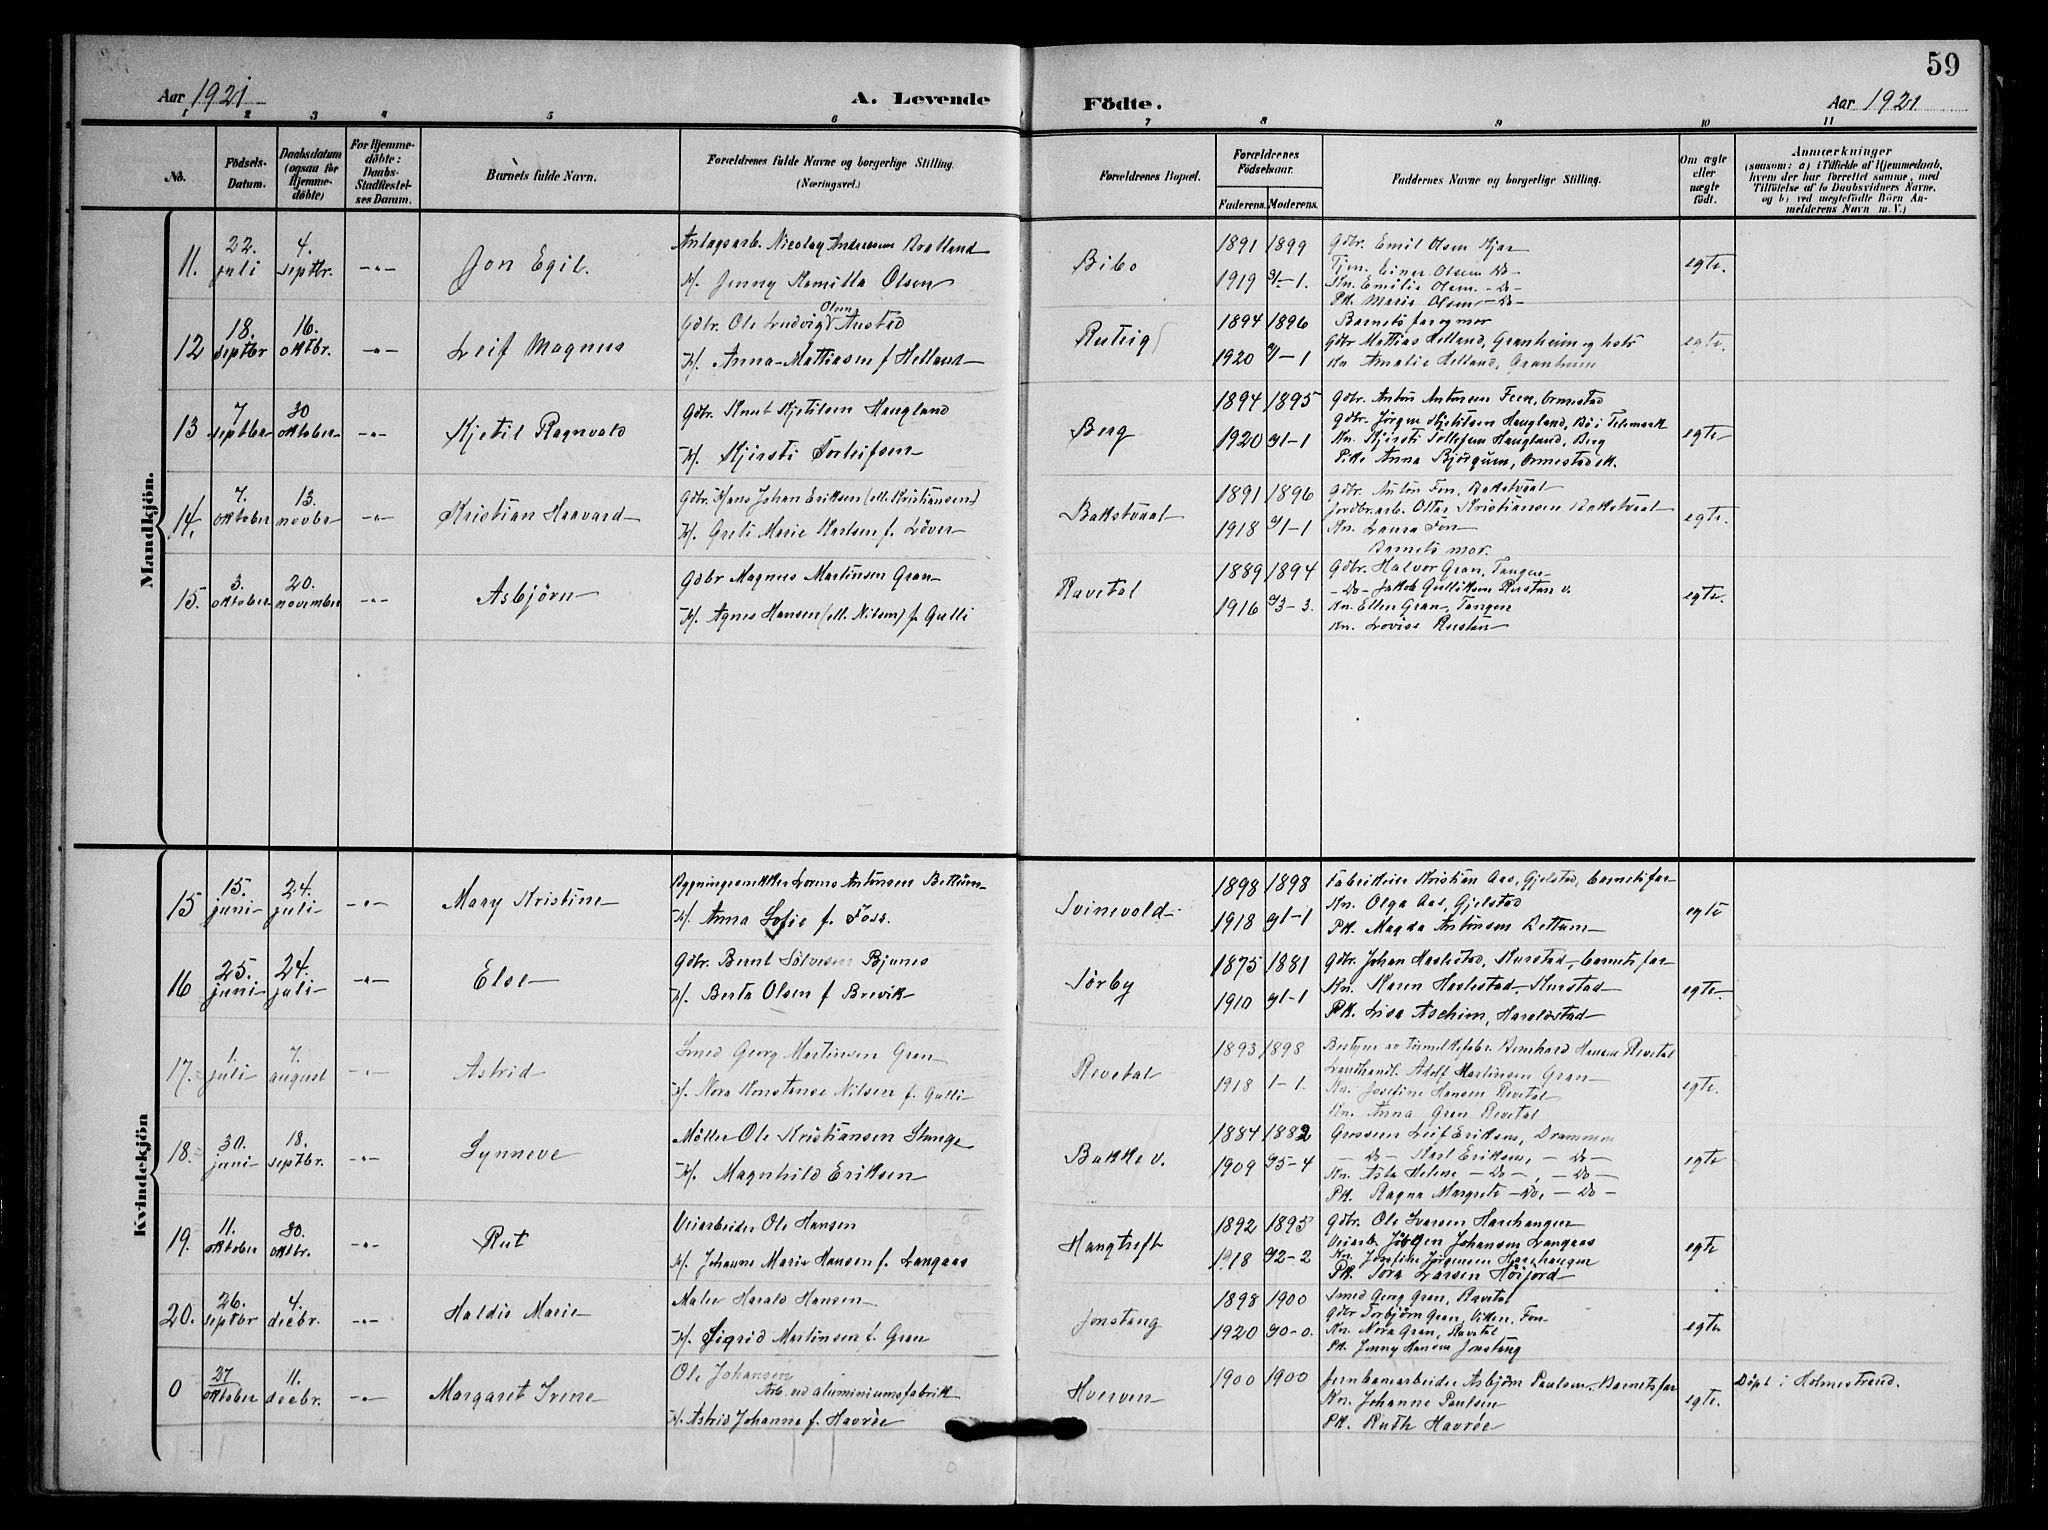 59
Aar 1921 A. Levende Födte. Aar 1921
1 2 3 4 5 6 7 8 9 10 11
No. Födsels-Datum. Daabsdatum (ogsaa for Hjemme-döbte) For Hjemme-döbte: Daabs-Stadfæstel-ses Datum. Barnets fulde Navn. Forældrenes fulde Navne og borgerlige Stilling. (Næringsvei.) Forældrenes Bopæl. Forældrenes Födselsaar. Faderens. Moderens. Faddernes Navne og borgerlige Stilling. Om ægte eller uægte födt. Anmærkninger (saasom: a) i Tilfælde af Hjemmedaab, hvem der har forrettet samme, med Tilföielse af to Daabsvidners Navne, og b) ved uægtefödte Börn An-melderens Navn m. V.)
Mandkjön.
11. 22. juli 4. septbr. -„- Jon Egil.
Anlagsarb. Nicolay Andreassen Bratland
K/. Jenny Kamilla Olsen
Bibo
1891 1899
1919 1.
Gdbr. Emil Olsen Kjær
Tjen. Einer Olsen -Do-
Kn. Emilie Olsen -Do-
Pk. Marie Olsen -Do-
egte.
12 18. septbr 16. oktbr. -„- Leif Magnus
Gdbr. Ole Ludvig Olsen Anstad
K/. Anna Mathiesen f Helland
1894 1896
1920 1
Barnets far og mor
Gdbr Mathias Helland, Granheim og
Kn Amalie Helland, Granheim
egte.
13 7 septbr 30 oktober -„- Kjetil Ragnvald
Gdbr. Knut Kjetilsen Haugland
K/. Kjersti Torleifsen
Berg
1894 1895
1920 1
Gdbr. Anton Antonsen Feen, Ormestad
Gdbr. Jørgen Kjetilsen Haugland, Bø i Telemark
Kn. Kjersti Tollefsen Haugland, Berg
Pike Anna Bjørgum, Ormestad
egte
14. 7. oktober 13 novbr -„- Kristian Haavard
Gdbr. Hans Johan Eriksen (ell. Kristiansen)
K/. Greti Marie Karlsen f. Löver
Bakstvaal
1891 1896
1918 1
Gdbr. Anton Fon, Bakstvaal
Jordbr.arb. Ottar Kristiansen Bakstvaal
Kn. Laura Fon
Barnets mor.
egte.
15. 3. oktober 20. november -„- Asbjörn
Gdbr Magnus Martinsen Gran
K/. Agnes Hansen (ell. Nilsen) f. Gulli
Ravetal
1889 1894
1916 3.
Gdbr. Halvor Gran, Tangen
-Do- Jakob Gulliksen Rustan v.
Kn. Ellen Gran, Tangen
Kn. Lovise Rustan
egte.
Kvindekjön
15 15. juni 24. juli -„- Mary Kristine
Bygningssnekker Lorens Antonsen Bettum
K/. Anna Sofie f. Foss.
Svinevold
1898 1898
1918 1
Fabrikeier Kristian Aas, Gjelstad, barnets far
Kn. Olga Aas, Gjelstad
Pk. Magda Antonsen Bettum
egte
16 25. juni 24. juli -„- Else
Gdbr. Bernt Sölvesen Bjunes
K/. Berta Olsen f Brevik
Sørby
1875 1881
1910 1
Gdbr. Johan Haslestad, Kurstad, barnets far
Kn. Karen Haslestad, Kurstad
Pk. Lisa Aschim, Haraldstad
egte.
17. 1. juli 7. august -„- Astrid
Smed Georg Martinsen Gran
K/. Nora Konstanse Nilsen f. Gulli
Revetal
1893 1898
1918 1-1.
Bestyrer av Bernhard Hansen Revetal
Landhandl. Adolf Martinsen Gran
Kn. Josefine Hansen Revetal
Kn. Anna Gran Revetal
egte.
18. 30. juni 18. septbr. -„- Synneve
Möller Ole Kristiansen Stange
K/. Magnhild Eriksen
Bakke v.
1884 1882
1909 5-4
Grosserer Leif Eriksen, Drammen
-Do- Karl Eriksen, -Do-
Kn. Asta Helene -Do-, -Do-
Pk. Ragna Margrete -Do, -Do-
egte
19. 11. oktober 30. oktbr. -„- Rut
Veiarbeider Ole Hansen
K/. Johanne Marie Hansen f. Langaas
1892 1895
1918 2-2
Gdbr. Ole Iversen Haschangen
Veiarb. Jörgen Johansen Langaas
Kn. Josefine Jörgensen Haschangen
Pk. Tora Larsen Höijord
egte
20. 26. septbr 4. decbr. -„- Haldis Marie
Maler Harald Hansen
K/. Sigrid Martinsen f. Gran
Jonstang
1898 1900
1920 0-0.
Smed Georg Gran, Ravetal
Gdbr Torbjørn Gran, Viken, Fon
Kn. Nora Gran, Ravetal
Pk. Jenny Hansen Jonstang
egte
0 27 oktober 11. decbr. -„- Margaret Irene
Ole Johansen
Arb. ved aluminiumsfabrik
K/. Astrid Johanne f. Havröe
Hverven
1900 1900
Jernbanearbeider Asbjörn Paulsen, Barnets far
Kn. Johanne Paulsen
Pk. Ruth Havröe
egte.
Döpt i Holmestrand.